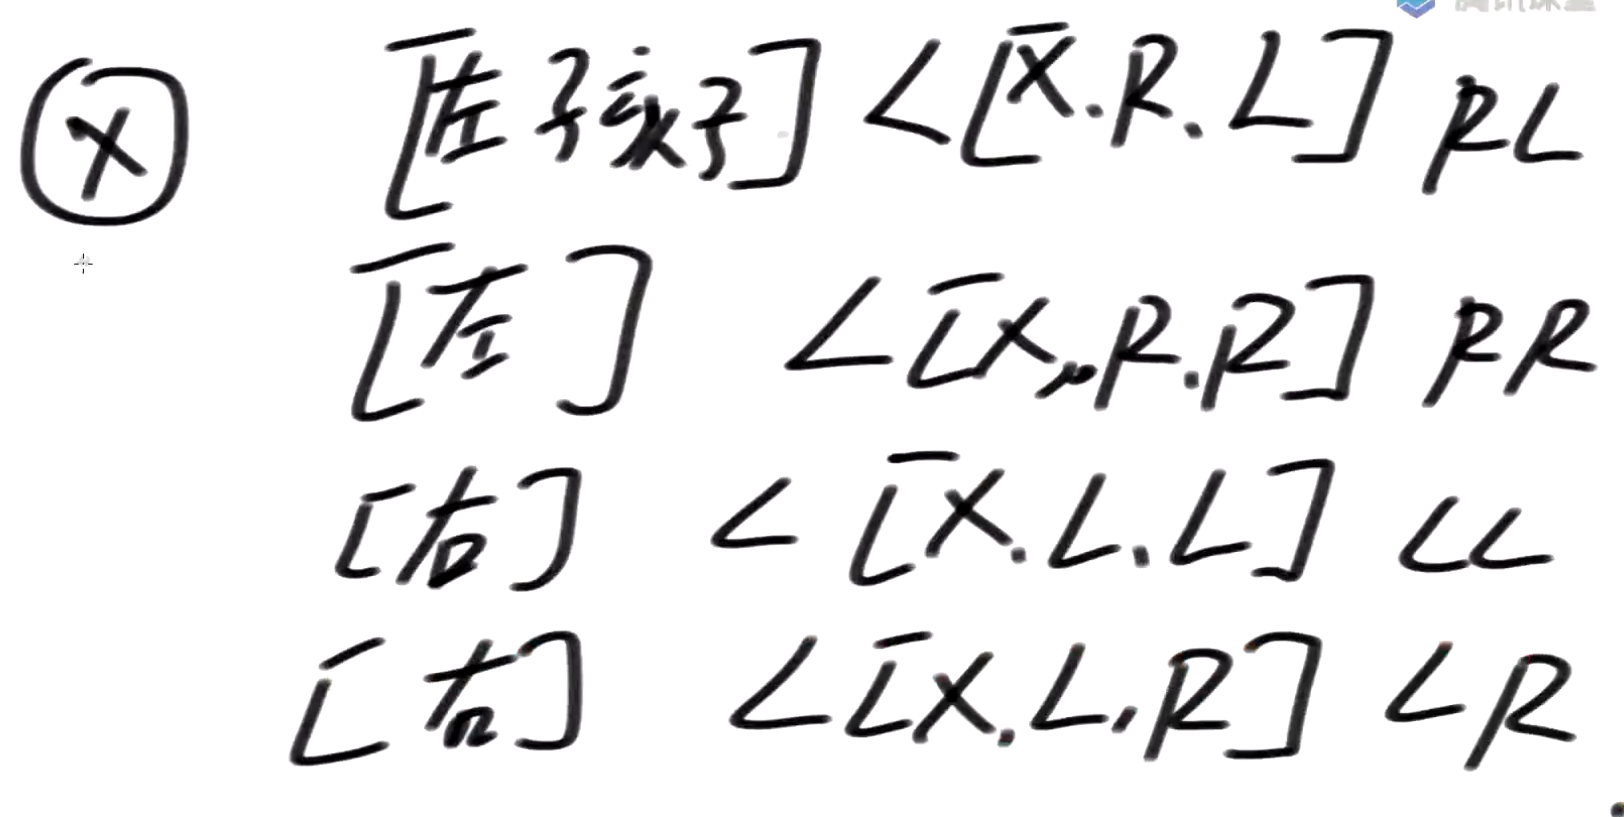 X [左子孩子] < [X.R.L] RL
[左] < [X,R.R] RR
[右] < [X.L.L] LL
[右] < [X.L.R] LR